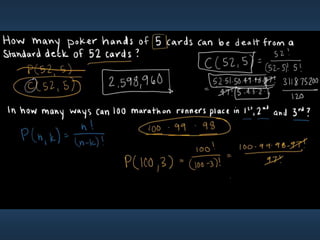 How many poker hands of 5 cards can be dealt from a
Standard deck of 52 cards?
P(52,5)
C(52,5)
2,598,960
C(52,5) = 52! / (52-5)! 5!
= 52·51·50·49·48·47! / 47! 5·4·3·2·1 = 311875200 / 120
In how many ways can 100 marathon runners place in 1st, 2nd and 3rd?
100 · 99 · 98
P(n,k) = n! / (n-k)!
P(100,3) = 100! / (100-3)! = 100·99·98·97! / 97!